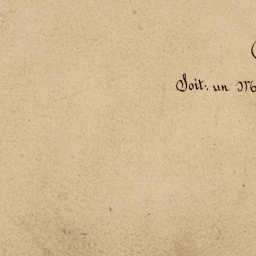 Soit: un M